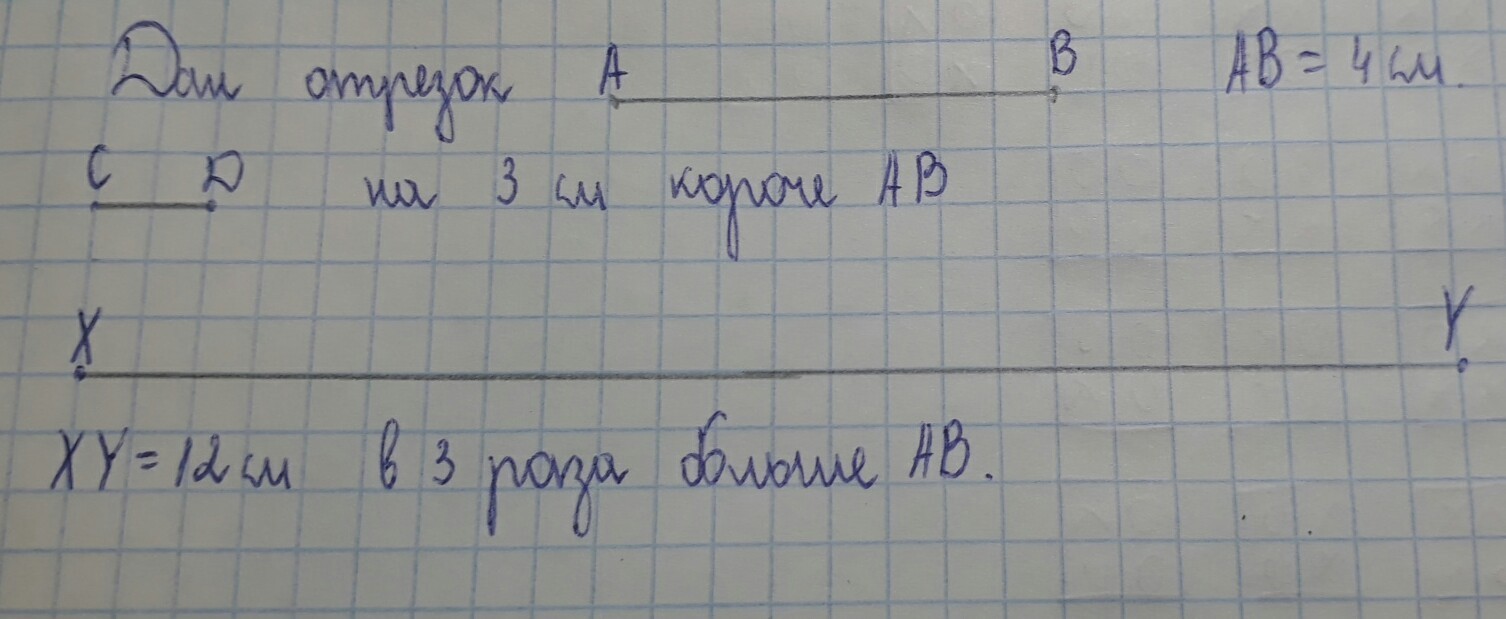 Дан отрезок A B AB = 4 см.
C D на 3 см короче AB
X Y
XY = 12 см в 3 раза больше AB.